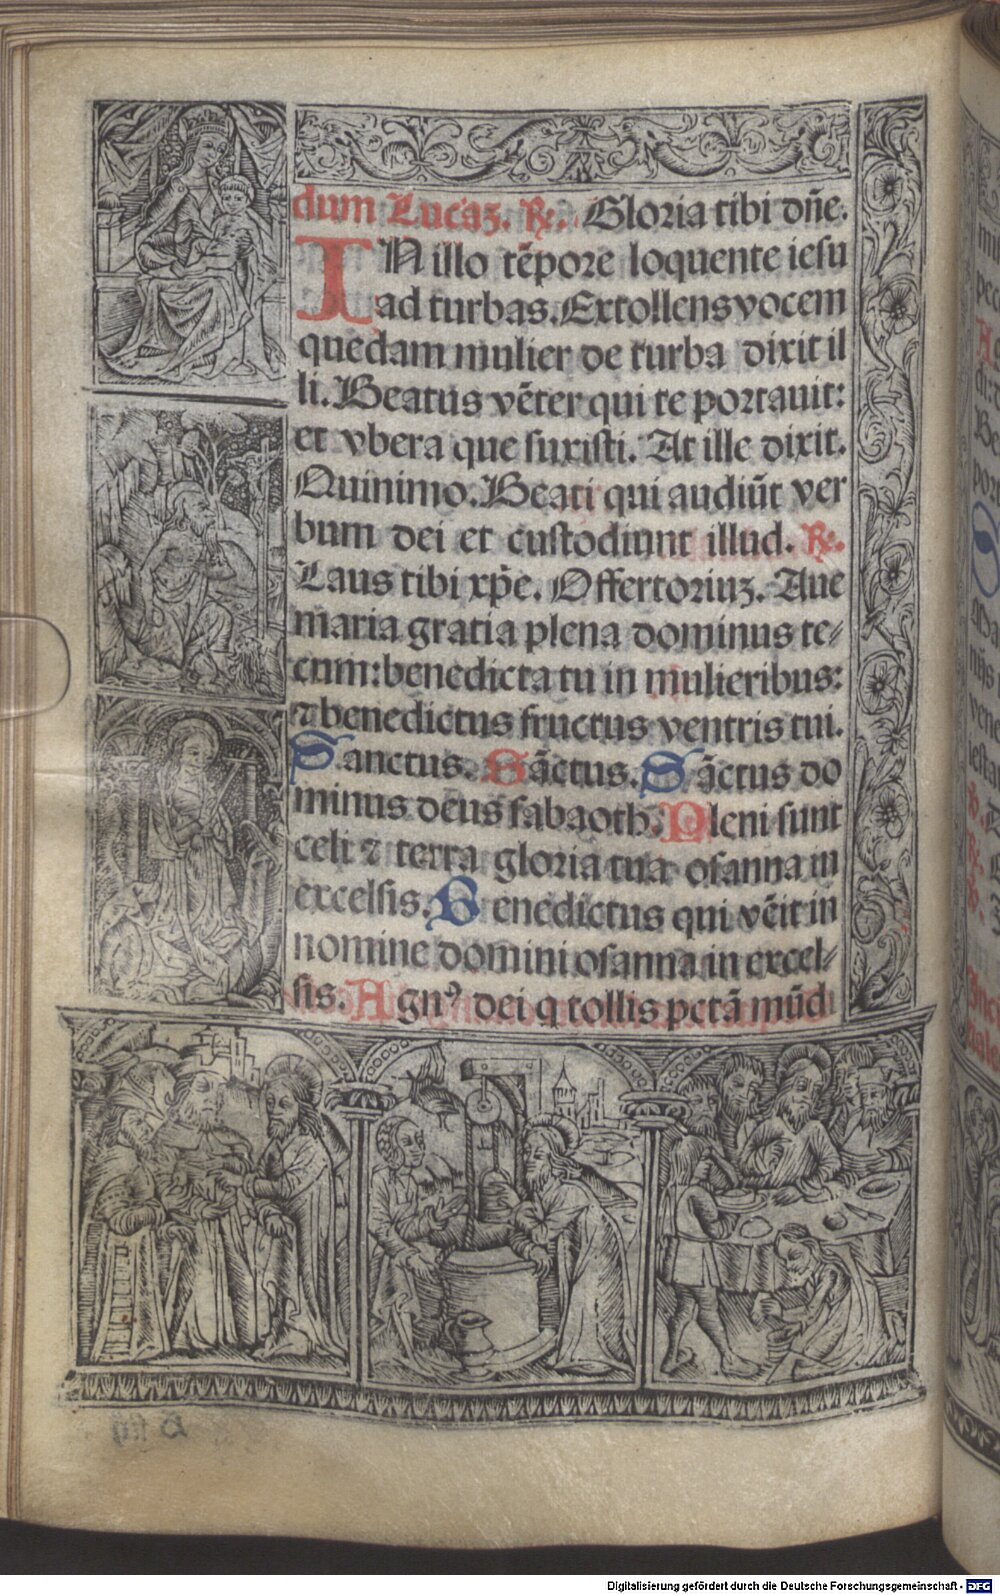 dum Lucaȝ. ℟. Gloria tibi dn̄e.
IN illo tēpore loquente iesu
ad turbas. Extollens vocem
quedam mulier de turba dixit il
li. Beatus vēter qui te portauit:
et vbera que suxisti. At ille dixit.
Quinimo. Beati qui audiūt ver
bum dei et custodiunt illud. ℟.
Laus tibi xp̄e. Offertoriuȝ. Aue
maria gratia plena dominus te⸗
cum: benedicta tu in mulieribus:
⁊ benedictus fructus ventris tui.
Sanctus. Sāctus. Sāctus do
minus deus sabaoth. Pleni sunt
celi ⁊ terra gloria tua osanna in
excelsis. Benedictus qui vēit in
nomine domini osanna in excel⸗
sis. Agnꝰ dei q tollis pctā mūd
Digitalisierung gefördert durch die Deutsche Forschungsgemeinschaft - DFG